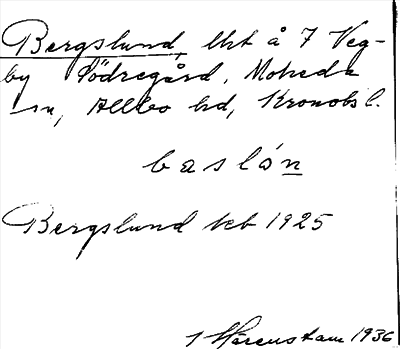 Bergslund, lht å 7 Veg-
by Södregård, Moheda
sn, Allbo hd, Kronobs l.
baslón
Bergslund keb 1925
Hårenstam 1936